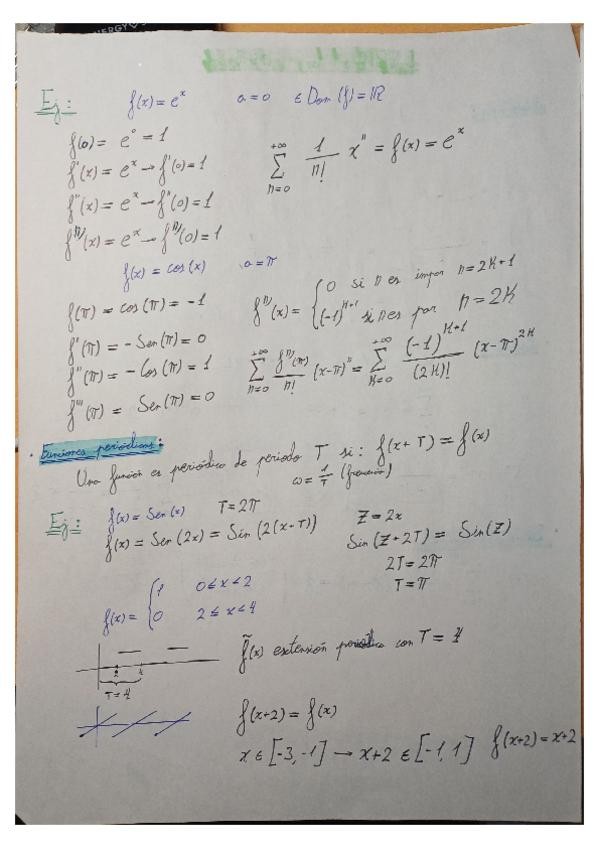 ENERGY
Ej: f(x) = e^x a=0 ∈ Dom (f) = ℝ
f(0) = e^0 = 1
f'(x) = e^x → f'(0) = 1
f''(x) = e^x → f''(0) = 1
f^n)(x) = e^x → f^n)(0) = 1
∑_{n=0}^{+∞} 1/n! x^n = f(x) = e^x
f(x) = cos(x) a=π
f(π) = cos(π) = -1
f'(π) = -Sen(π) = 0
f''(π) = -Cos(π) = 1
f'''(π) = Sen(π) = 0
f^n)(x) = { 0 si n es impar n=2K+1
(-1)^{K+1} si n es par n=2K
∑_{n=0}^{+∞} f^n)(π)/n! (x-π)^n = ∑_{K=0}^{+∞} (-1)^{K+1}/(2K)! (x-π)^{2K}
· Funciones periódicas:
Una función es periódica de periodo T si: f(x+T) = f(x)
ω = 1/T (frecuencia)
Ej: f(x) = Sen(x) T=2π
f(x) = Sen(2x) = Sin(2(x+T))
Z = 2x
Sin(Z+2T) = Sin(Z)
2T = 2π
T = π
f(x) = { 1 0≤x<2
0 2≤x<4
f̃(x) extensión periódica con T = 4
2 4
T=4
f(x+2) = f(x)
x ∈ [-3,-1] → x+2 ∈ [-1,1] f(x+2) = x+2